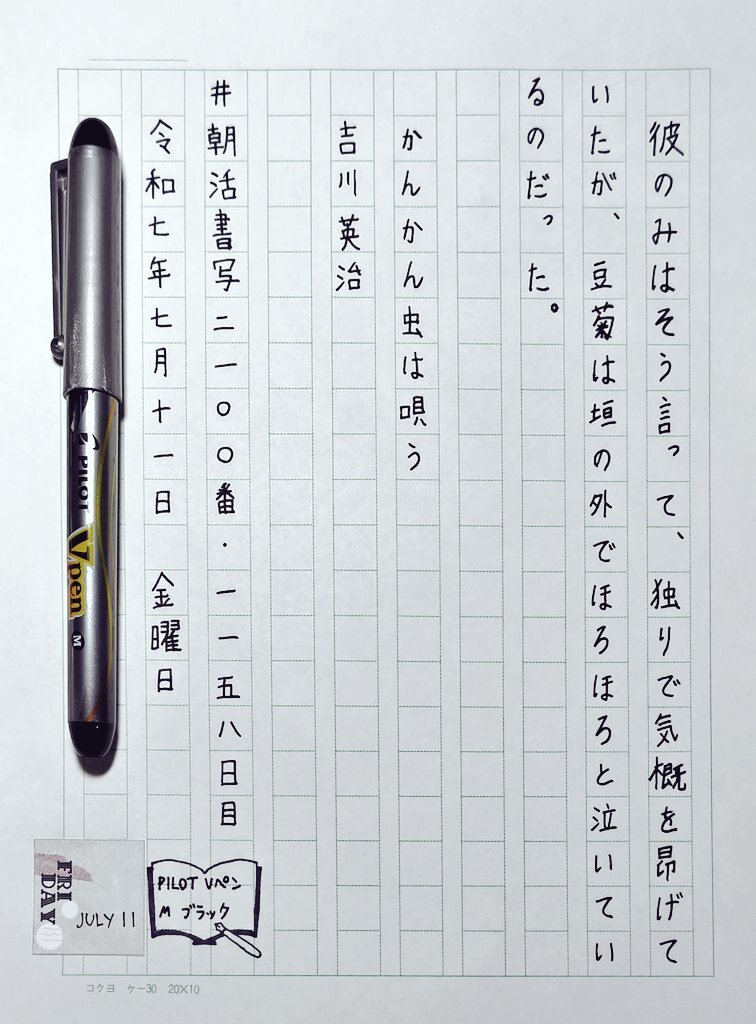 彼のみはそう言って、独りで気概を昂げて
いたが、豆菊は垣の外でほろほろと泣いてい
るのだった。
かんかん虫は唄う
吉川英治
#朝活書写二一〇〇番・一一五八日目
令和七年七月十一日 金曜日
PILOT
Vpen
M
FRI
DAY
JULY 11
PILOT Vペン
M ブラック
コクヨ ケー30 20×10